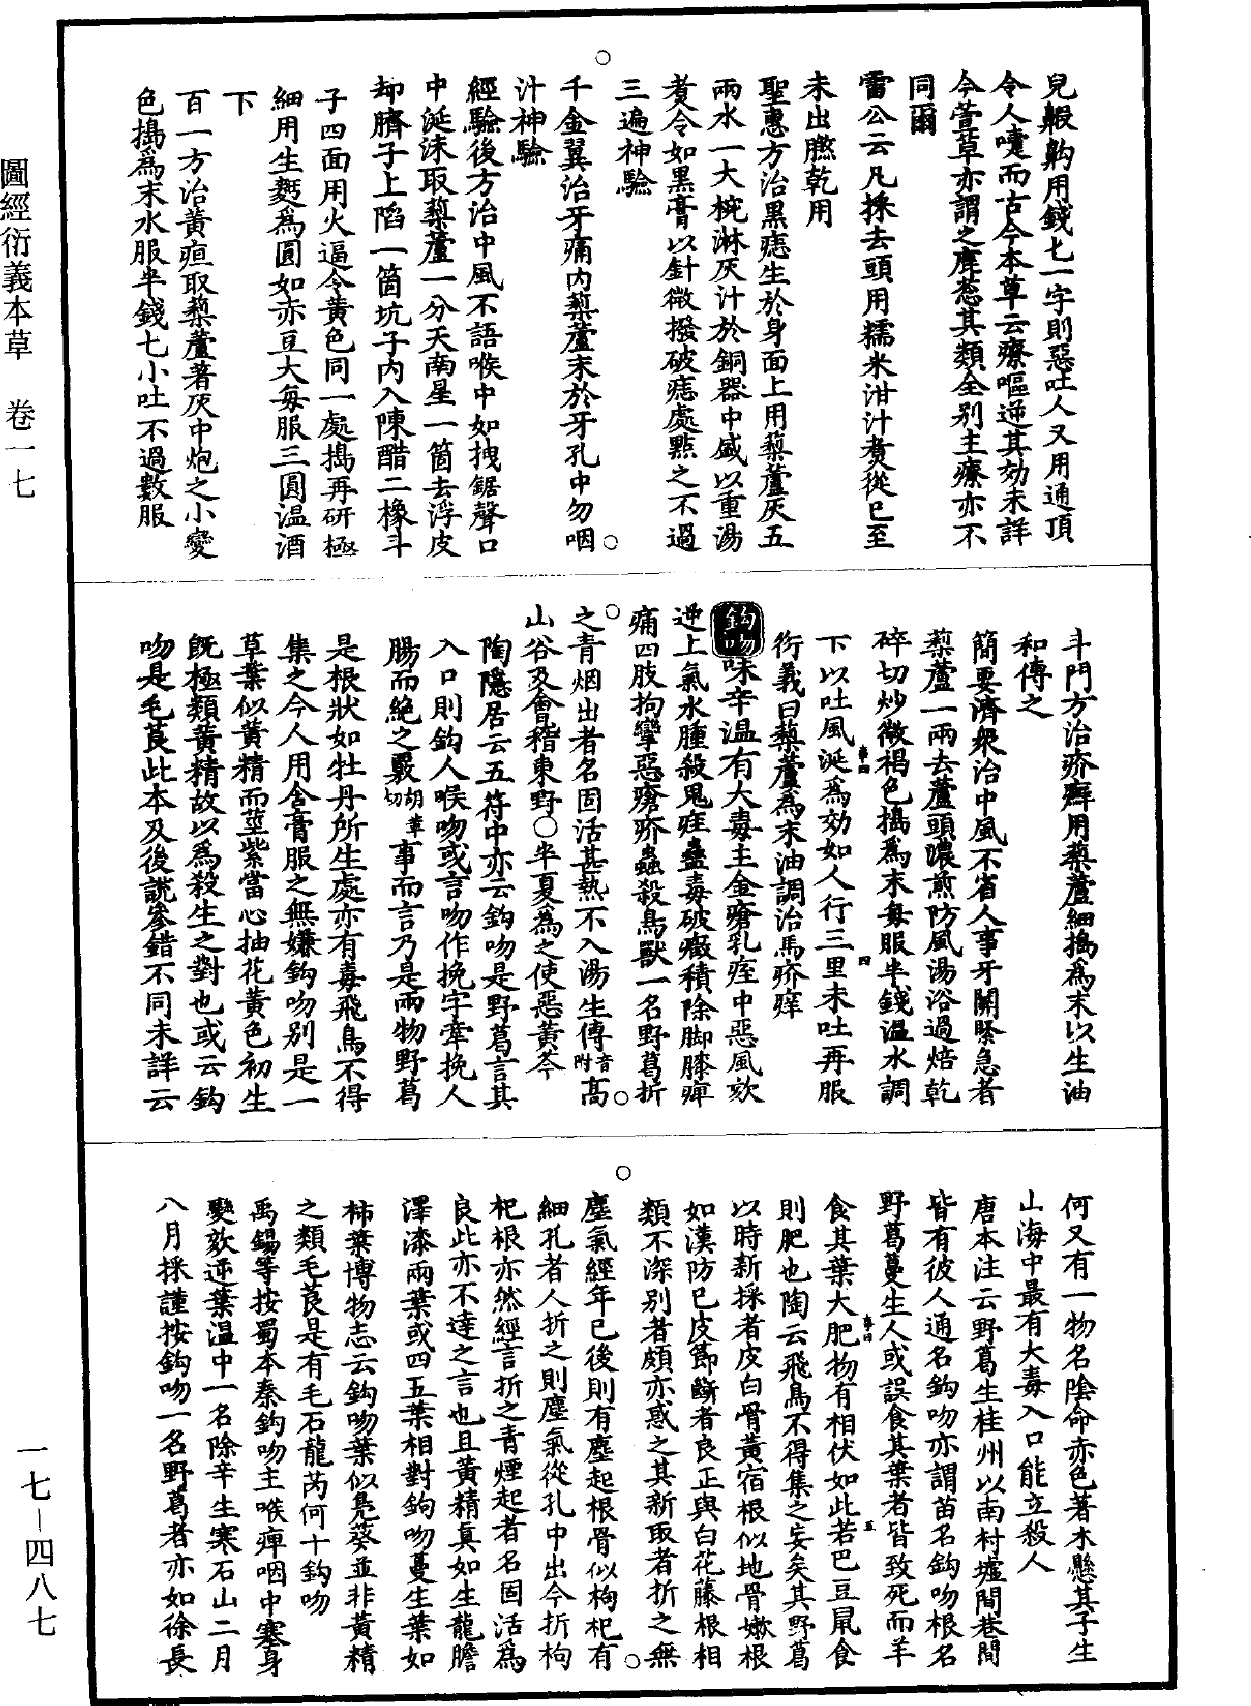 圖經衍義本草　卷一七
兒齁䶎用錢七一字則惡吐人又用通頂
令人嚏而古今本草云療嘔逆其効未詳
今萱草亦謂之鹿葱其類全别主療亦不
同爾
雷公云凡採去頭用糯米泔汁煑從巳至
未出㬠乾用
聖惠方治黒痣生於身面上用藜蘆灰五
兩水一大椀淋灰汁於銅器中盛以重湯
煑令如黒膏以針微撥破痣處㸃之不過
三遍神驗
千金翼治牙痛内藜蘆末於牙孔中勿咽
汁神驗
經驗後方治中風不語喉中如拽鋸聲口
中涎沫取藜蘆一分天南星一箇去浮皮
却臍子上䧟一箇坑子内入陳醋二橡斗
子四面用火逼令黄色同一處搗再研極
細用生麪為圓如赤豆大每服三圓温酒
下
百一方治黄疸取藜蘆著灰中炮之小變
色搗為末水服半錢七小吐不過數服
斗門方治疥癬用藜蘆細搗為末以生油
和傅之
簡要濟衆治中風不省人事牙關緊急者
藜蘆一兩去蘆頭濃煎防風湯浴過焙乾
碎切炒微褐色搗為末每服半錢温水調
下以吐風涎為効如人行三里未吐再服
衍義曰藜蘆為末油調治馬疥痒
鈎吻味辛温有大毒主金瘡乳痓中惡風欬
逆上氣水腫殺鬼疰蠱毒破癥積除脚膝痺
痛四肢拘攣惡瘡疥蟲殺鳥獸一名野葛折
之青烟出者名固活甚熱不入湯生傅音附髙
山谷及會稽東野○半夏為之使惡黄芩
陶隱居云五符中亦云鈎吻是野葛言其
入口則鈎人喉吻或言吻作挽字牽挽人
腸而絶之覈胡革切事而言乃是兩物野葛
是根狀如牡丹所生處亦有毒飛鳥不得
集之今人用合膏服之無嫌鈎吻别是一
草葉似黄精而莖紫當心抽花黄色初生
旣極類黄精故以為殺生之對也或云鈎
吻是毛茛此本及後説參錯不同未詳云
何又有一物名陰命赤色著木懸其子生
山海中最有大毒入口能立殺人
唐本注云野葛生桂州以南村墟閭巷間
皆有彼人通名鈎吻亦謂苗名鈎吻根名
野葛蔓生人或誤食其葉者皆致死而羊
食其葉大肥物有相伏如此若巴豆鼠食
則肥也陶云飛鳥不得集之妄矣其野葛
以時新採者皮白骨黄宿根似地骨嫩根
如漢防巳皮節斷者良正與白花藤根相
類不深别者頗亦惑之其新取者折之無
塵氣經年巳後則有塵起根骨似枸杞有
細孔者人折之則塵氣從孔中出今折枸
杞根亦然經言折之青煙起者名固活為
良此亦不達之言也且黄精真如生龍膽
澤漆兩葉或四五葉相對鈎吻蔓生葉如
柿葉博物志云鈎吻葉似凫葵並非黄精
之類毛茛是有毛石龍芮何十鈎吻
禹錫等按蜀本秦鈎吻主喉痺咽中塞身
變欬逆葉温中一名除辛生寒石山二月
八月採謹按鈎吻一名野葛者亦如徐長
一七－四八七